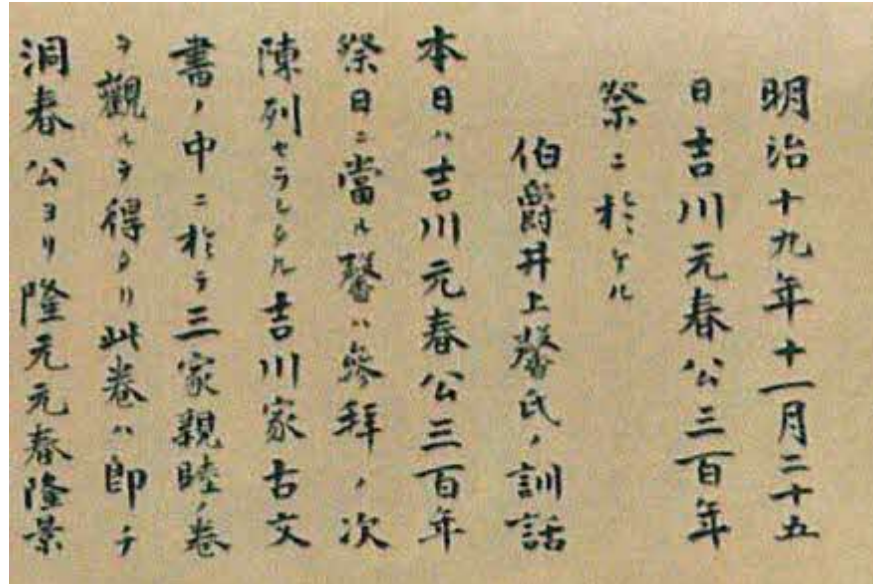 明治十九年十一月二十五
日吉川元春公三百年
祭ニ於ケル
伯爵井上馨氏ノ訓話
本日ハ吉川元春公三百年
祭日ニ當ル馨ハ參拜ノ次
陳列セラレタル吉川家古文
書ノ中ニ於テ三家親睦ノ卷
ヲ觀ルヲ得タリ此卷ハ卽チ
洞春公ヨリ隆元元春隆景